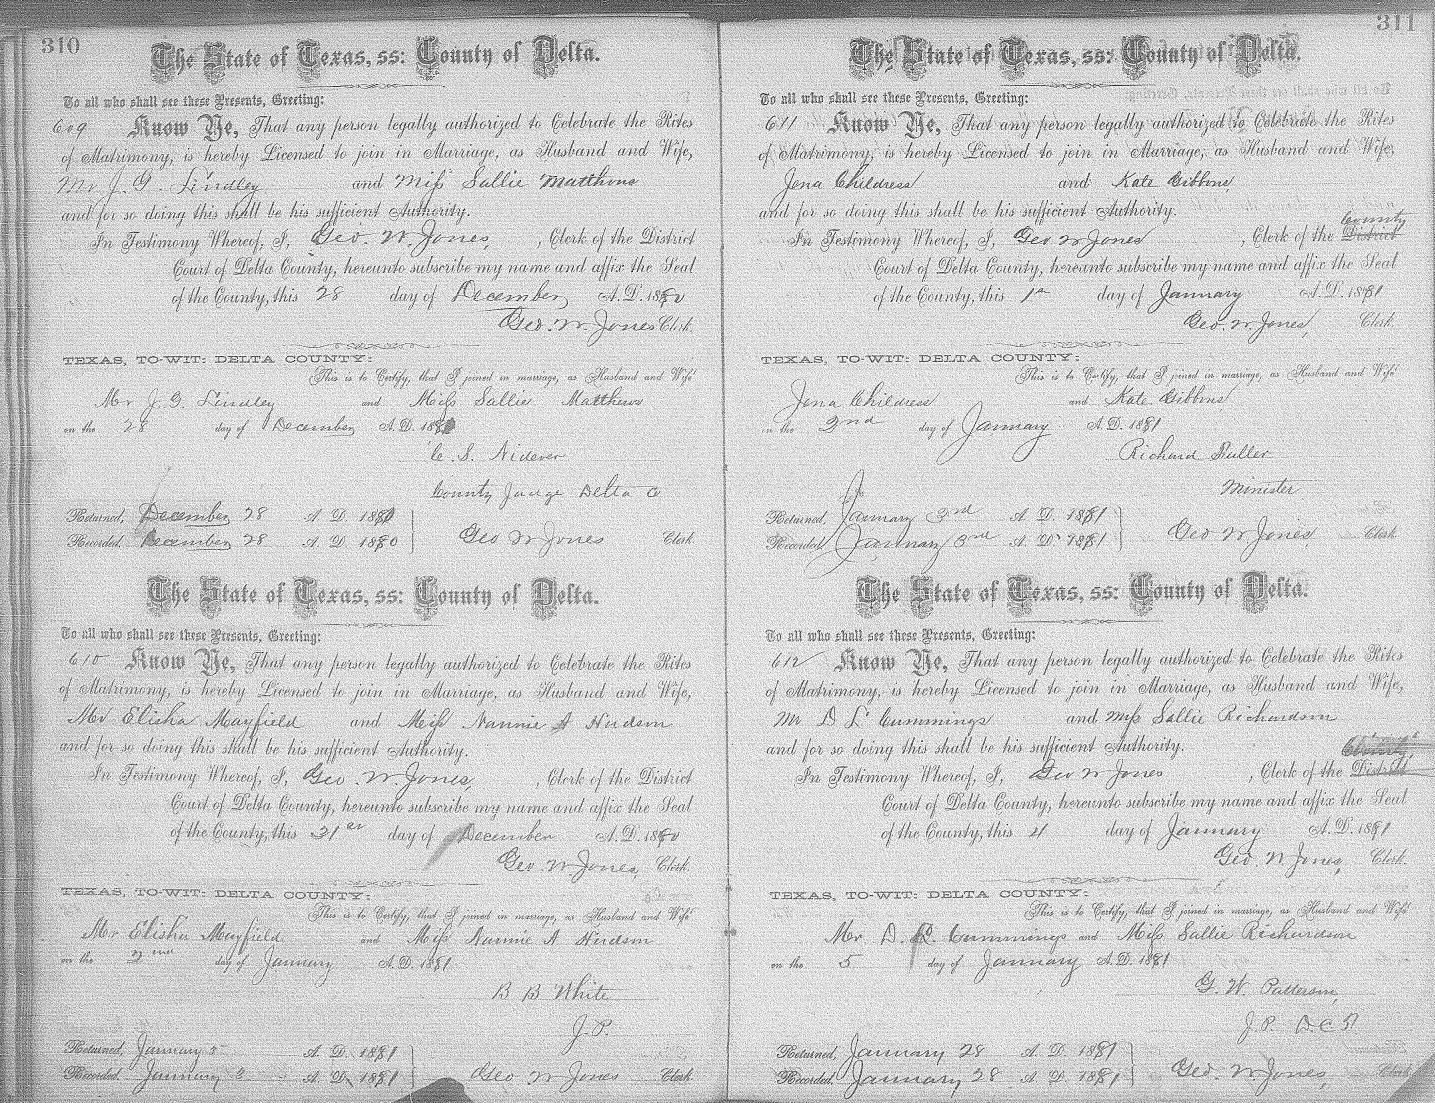 310
The State of Texas, ss: County of Delta.
To all who shall see these Presents, Greeting:
609 Know Ye, That any person legally authorized to Celebrate the Rites
of Matrimony, is hereby Licensed to join in Marriage, as Husband and Wife,
Mr J. G. Lindley and Miss Sallie Matthews
and for so doing this shall be his sufficient Authority.
In Testimony Whereof, I, Geo. W. Jones, , Clerk of the District
Court of Delta County, hereunto subscribe my name and affix the Seal
of the County, this 28 day of December A. D. 1880
Geo. W. Jones Clerk.
TEXAS, TO-WIT: DELTA COUNTY:
This is to Certify, that I joined in marriage, as Husband and Wife
Mr J. G. Lindley and Miss Sallie Matthews
on the 28 day of December A. D. 1880
C. S. Niderer
County Judge Delta Co
Returned, December 28 A. D. 1880
Recorded, December 28 A. D. 1880 Geo W Jones Clerk
The State of Texas, ss: County of Delta.
To all who shall see these Presents, Greeting:
610 Know Ye, That any person legally authorized to Celebrate the Rites
of Matrimony, is hereby Licensed to join in Marriage, as Husband and Wife,
Mr Elisha Mayfield and Miss Nannie A Hudson
and for so doing this shall be his sufficient Authority.
In Testimony Whereof, I, Geo. W Jones, , Clerk of the District
Court of Delta County, hereunto subscribe my name and affix the Seal
of the County, this 31st day of December A. D. 1880
Geo. W Jones, Clerk.
TEXAS, TO-WIT: DELTA COUNTY:
This is to Certify, that I joined in marriage, as Husband and Wife
Mr Elisha Mayfield and Miss Nannie A Hudson
on the 2nd day of January A. D. 1881
B B White
J. P.
Returned, January 3 A. D. 1881
Recorded, January 3 A. D. 1881 Geo W Jones Clerk
311
The State of Texas, ss: County of Delta.
To all who shall see these Presents, Greeting:
611 Know Ye, That any person legally authorized to Celebrate the Rites
of Matrimony, is hereby Licensed to join in Marriage, as Husband and Wife,
Jona Childress and Kate Gibbons,
and for so doing this shall be his sufficient Authority.
County
In Testimony Whereof, I, Geo W Jones , Clerk of the District
Court of Delta County, hereunto subscribe my name and affix the Seal
of the County, this 1st day of January A. D. 1881
Geo. W. Jones, Clerk
TEXAS, TO-WIT: DELTA COUNTY:
This is to Certify, that I joined in marriage, as Husband and Wife
Jona Childress and Kate Gibbons
on the 2nd day of January A. D. 1881
Richard Fuller
Minister
Returned, January 3rd A. D. 1881
Recorded, January 3rd A. D. 1881 Geo W Jones, Clerk
The State of Texas, ss: County of Delta.
To all who shall see these Presents, Greeting:
612 Know Ye, That any person legally authorized to Celebrate the Rites
of Matrimony, is hereby Licensed to join in Marriage, as Husband and Wife,
Mr D L Cummings and Miss Sallie Richardson
and for so doing this shall be his sufficient Authority.
County
In Testimony Whereof, I, Geo W Jones , Clerk of the District
Court of Delta County, hereunto subscribe my name and affix the Seal
of the County, this 4 day of January A. D. 1881
Geo. W. Jones, Clerk.
TEXAS, TO-WIT: DELTA COUNTY:
This is to Certify, that I joined in marriage, as Husband and Wife
Mr D. Cummings and Miss Sallie Richardson
on the 5 day of January A. D. 1881
G. W. Patterson,
J P. D. C.
Returned, January 28 A. D. 1881
Recorded, January 28 A. D. 1881 Geo. W. Jones, Clerk